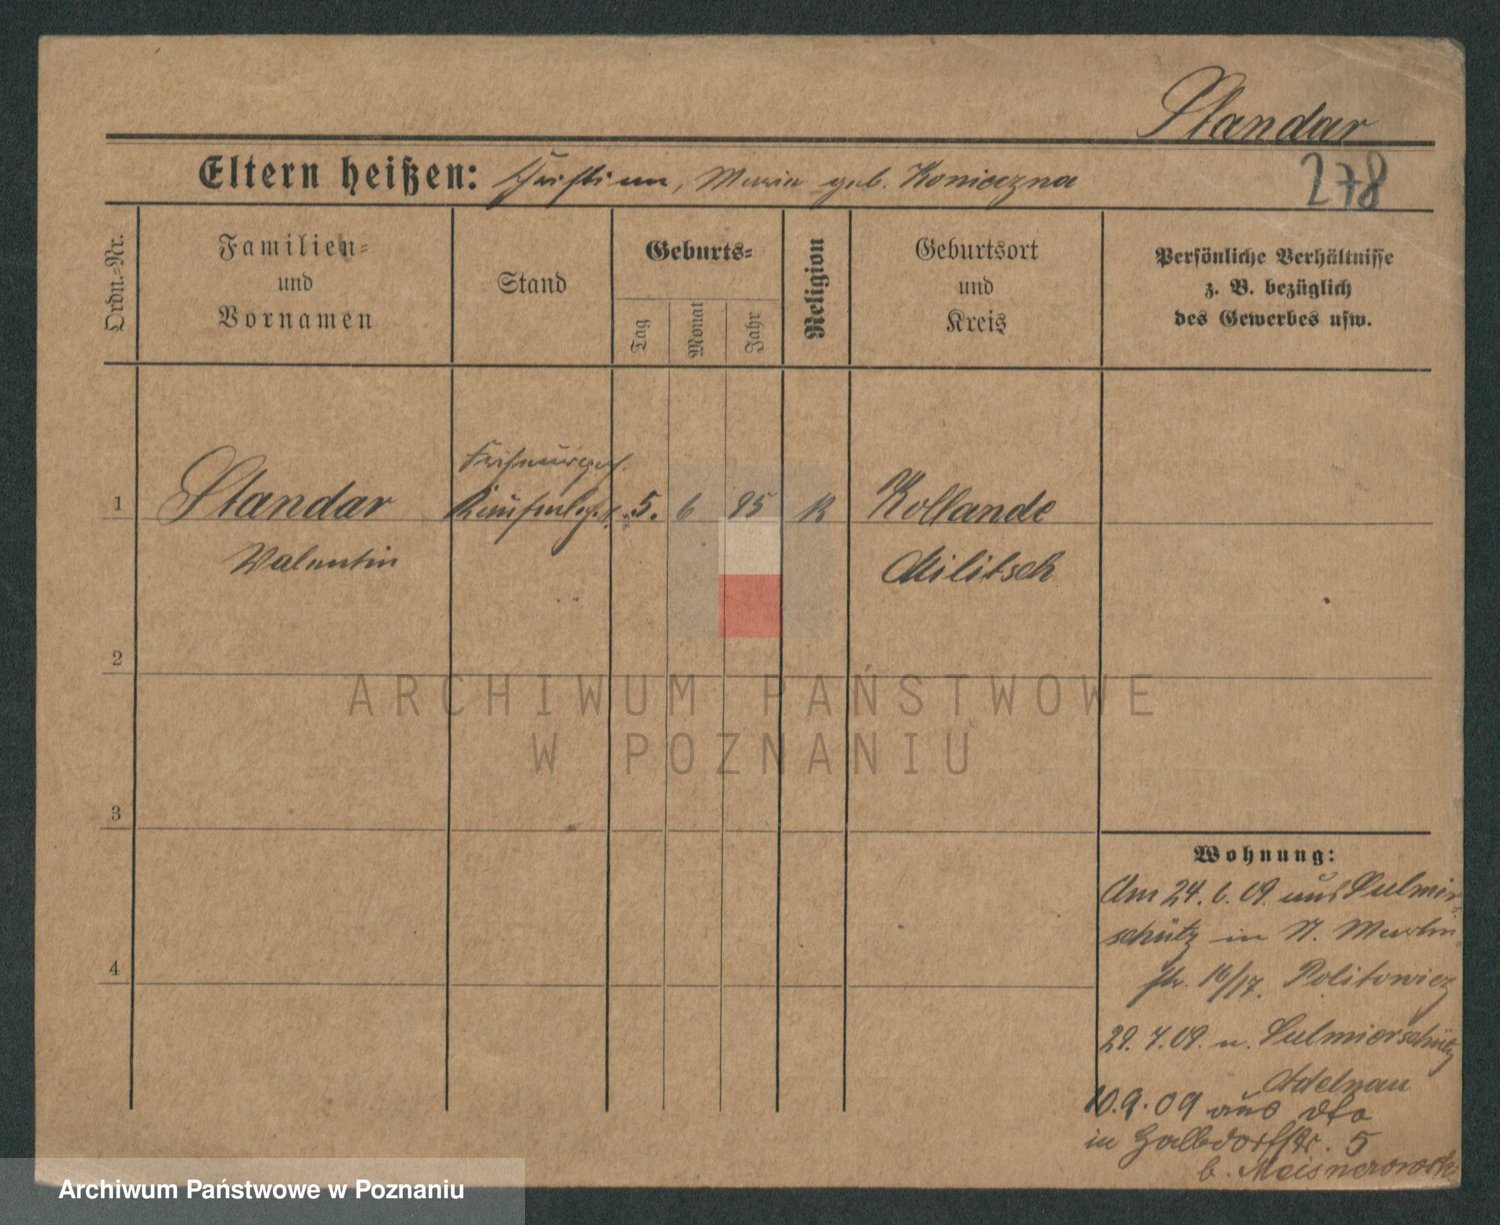 Standar
Eltern heißen: Christian, Maria geb. Konieczna
278
Ordn.-Nr.
Familien-
und
Vornamen
Stand
Geburts-
Tag
Monat
Jahr
Religion
Geburtsort
und
Kreis
Persönliche Verhältnisse
z. B. bezüglich
des Gewerbes usw.
1
Standar
Valentin
5. 6 95
K
Kollande
Militsch
2
3
4
ARCHIWUM PAŃSTWOWE
W POZNANIU
Wohnung:
Am 24. 6. 09. aus Sulmier-
schütz in St. Martin
str. 16/17. Politowicz
29. 7. 09. n. Sulmierschütz
Adelnau
10. 9. 09 aus dto
in Halbdorfstr. 5
b.
Archiwum Państwowe w Poznaniu